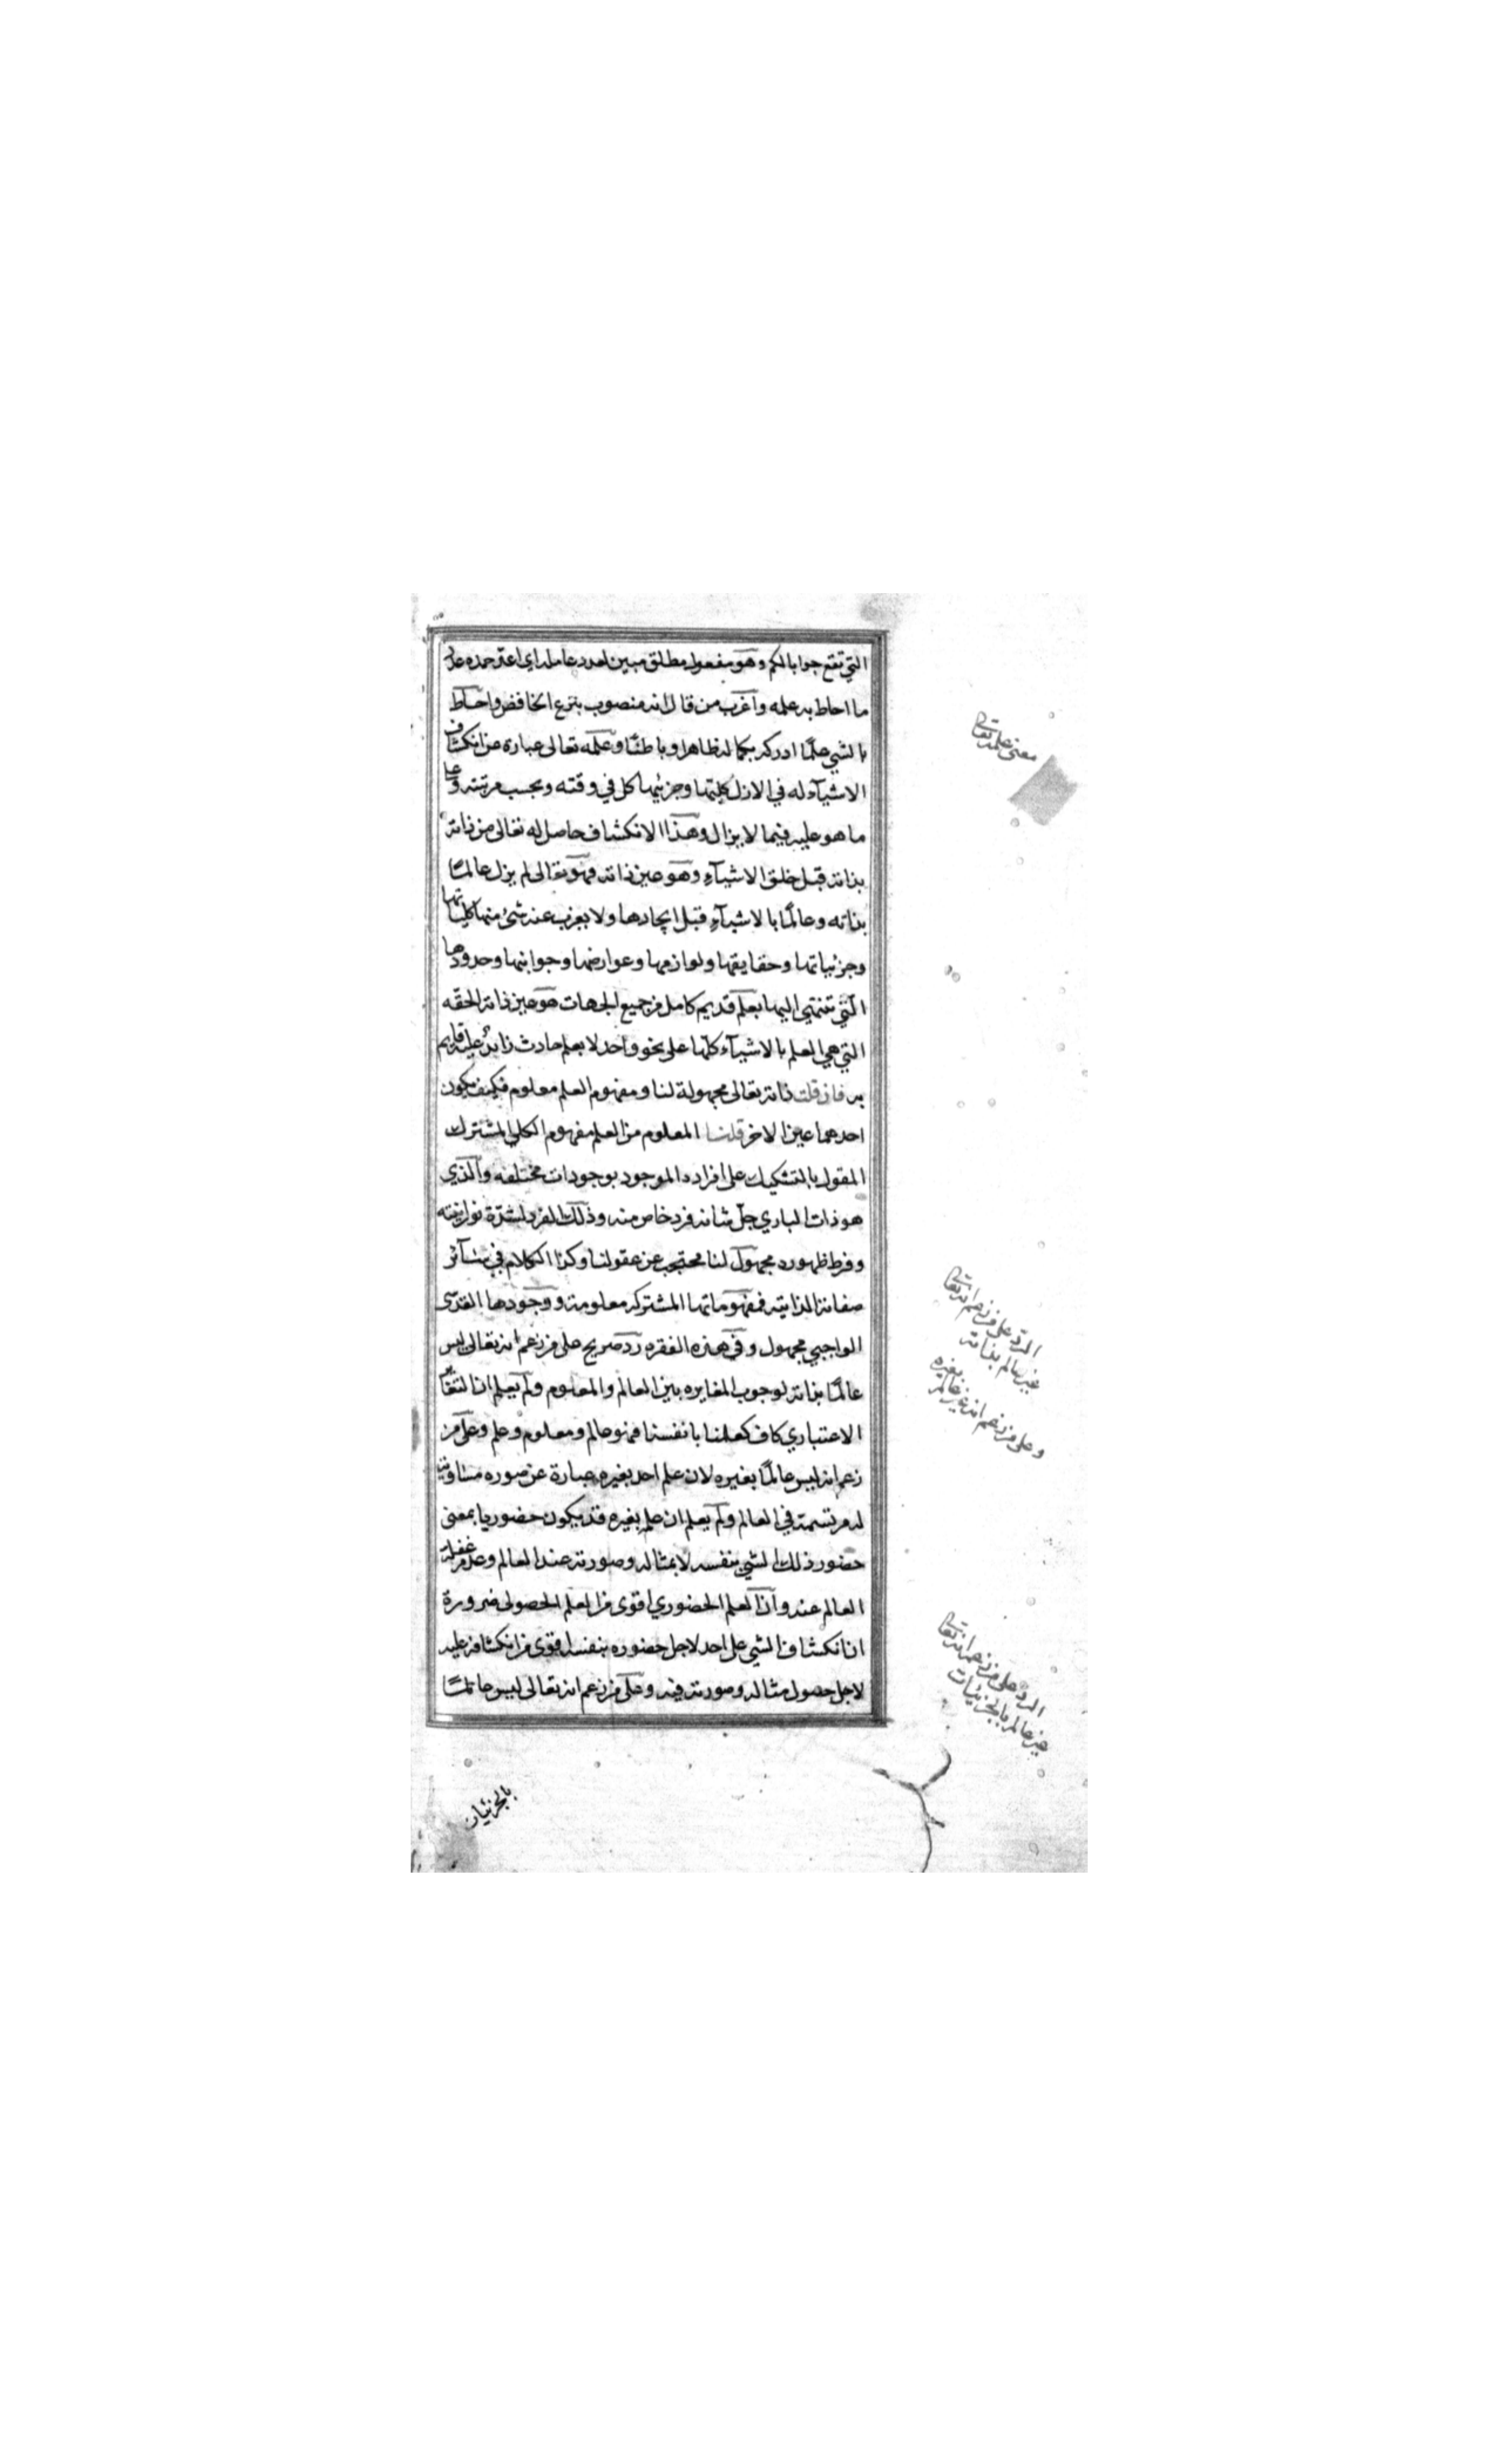 التي تقع جوابا لكم وهو مفعول مطلق مبين لعدد عامله اي اعد حمده عدد
ما احاط به علمه واغرب من قال انه منصوب بنزع الخافض واحاط
بالشي علمًا ادركه بكماله ظاهرا وباطنًا وعلمه تعالى عبارة عن انكشاف
الاشيآء له في الازل كليتها وجزئيها كل في وقته وبحسب مرتبته وعلى
ما هو عليه فيما لا يزال وهذا الانكشاف حاصل له تعالى من ذاته
بذاته قبل خلق الاشيآءِ وهو عين ذاته فهو تعالى لم يزل عالمًا
بذاته وعالمًا بالاشيآءِ قبل ايجادها ولا يعزب عنه شئ منها كلياتها
وجزئياتها وحقايقها ولوازمها وعوارضها وجوانبها وحدودها
الّتي تنتهي اليها بعلم قديم كامل من جميع الجهات هو عين ذاته الحقه
التي هي العلم بالاشيآء كلّها على نحو واحد لا بعلم حادث زايدٌ عليه قايم
به فان قلت ذاته تعالى مجهولة لنا ومفهوم العلم معلوم فكيف يكون
احدهما عين الاخر قلنا المعلوم من العلم مفهوم الكلي المشترك
المقول بالتشكيك على افراده الموجود بوجودات مختلفه والذي
هو ذات الباري جلّ شانه فرد خاص منه وذلك الفرد لشدّة نورانيته
وفرط ظهوره مجهول لنا محتجب عن عقولنا وكذا الكلام في سآئر
صفاته الذاتيه فمفهوماتها المشتركه معلومة ووجودها القدسى
الواجبي مجهول وفي هذه الفقره رد صريح على من زعم انه تعالى ليس
عالمًا بذاته لوجوب المغايره بين العالم والمعلوم ولم يعلم ان التغاير
الاعتباري كاف كعلمنا بانفسنا فهو عالم ومعلوم وعلم وعلى من
زعم انه ليس عالمًا بغيره لان علم احد بغيره عبارة عن صوره مساوية
له مرتسمة في العالم ولم يعلم ان علم بغيره قد يكون حضوريا بمعنى
حضور ذلك الشي بنفسه لا بمثاله وصورته عند العالم وعدم غفلة
العالم عنه وان العلم الحضوري اقوى من العلم الحصولى ضرورة
ان انكشاف الشي على احد لاجل حضوره بنفسه اقوى من انكشافه عليه
لاجل حصول مثاله وصورته فيه وعلى من زعم انه تعالى ليس عالمًا
بالجزئيات
معنى علمه تعالى
الرد على من زعم انه تعالى
غير عالم بذاته
وعلى من زعم انه غير عالم بغيره
الرد على من زعم انه تعالى
غير عالم بالجزئيات